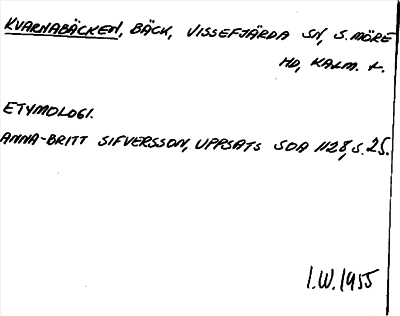 KVARNABÄCKEN, BÄCK, VISSEFJÄRDA SN, S. MÖRE
HD, KALM. L.
ETYMOLOGI.
ANNA-BRITT SIFVERSSON, UPPSATS SOA 1128, S. 25.
I.W. 1955